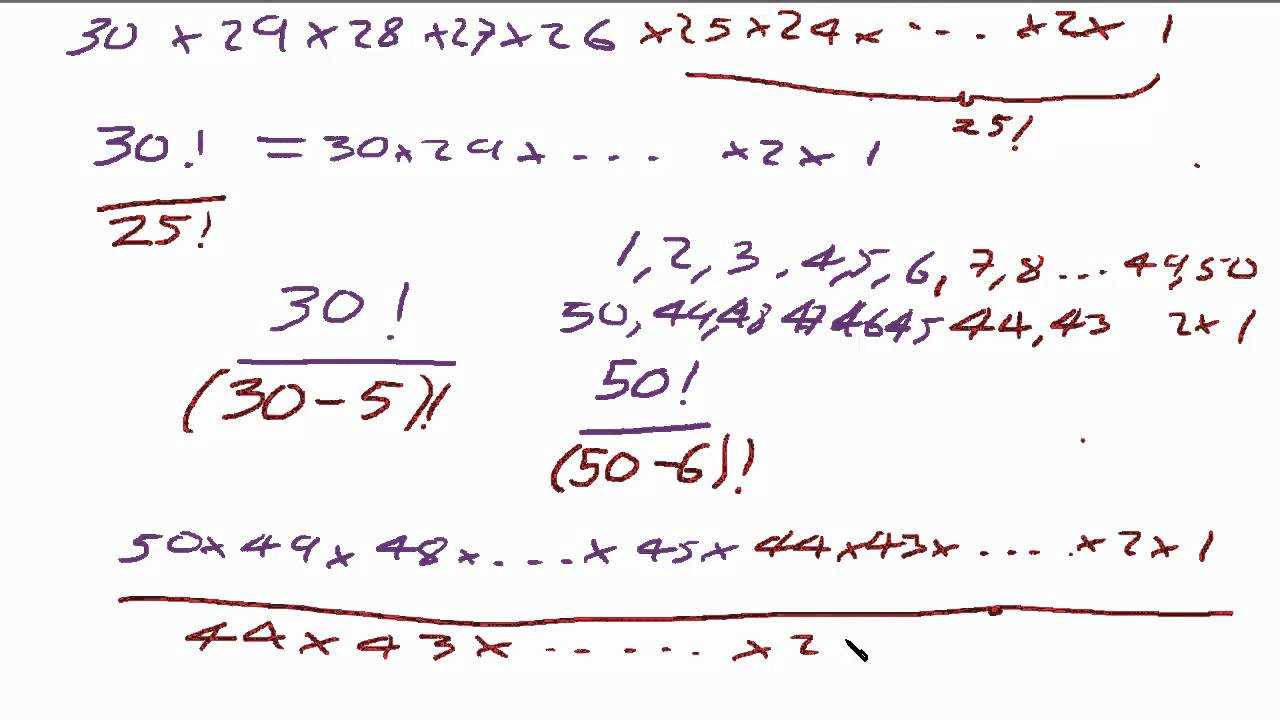 30 × 29 × 28 × 27 × 26 × 25 × 24 × ... × 2 × 1
25!
30! = 30 × 29 × ... × 2 × 1
25!
1, 2, 3, 4, 5, 6, 7, 8 ... 49, 50
50, 49, 48 47 46 45 44, 43 2 × 1
30!
(30 - 5)!
50!
(50 - 6)!
50 × 49 × 48 × ... × 45 × 44 × 43 × ... × 2 × 1
44 × 43 × ..... × 2